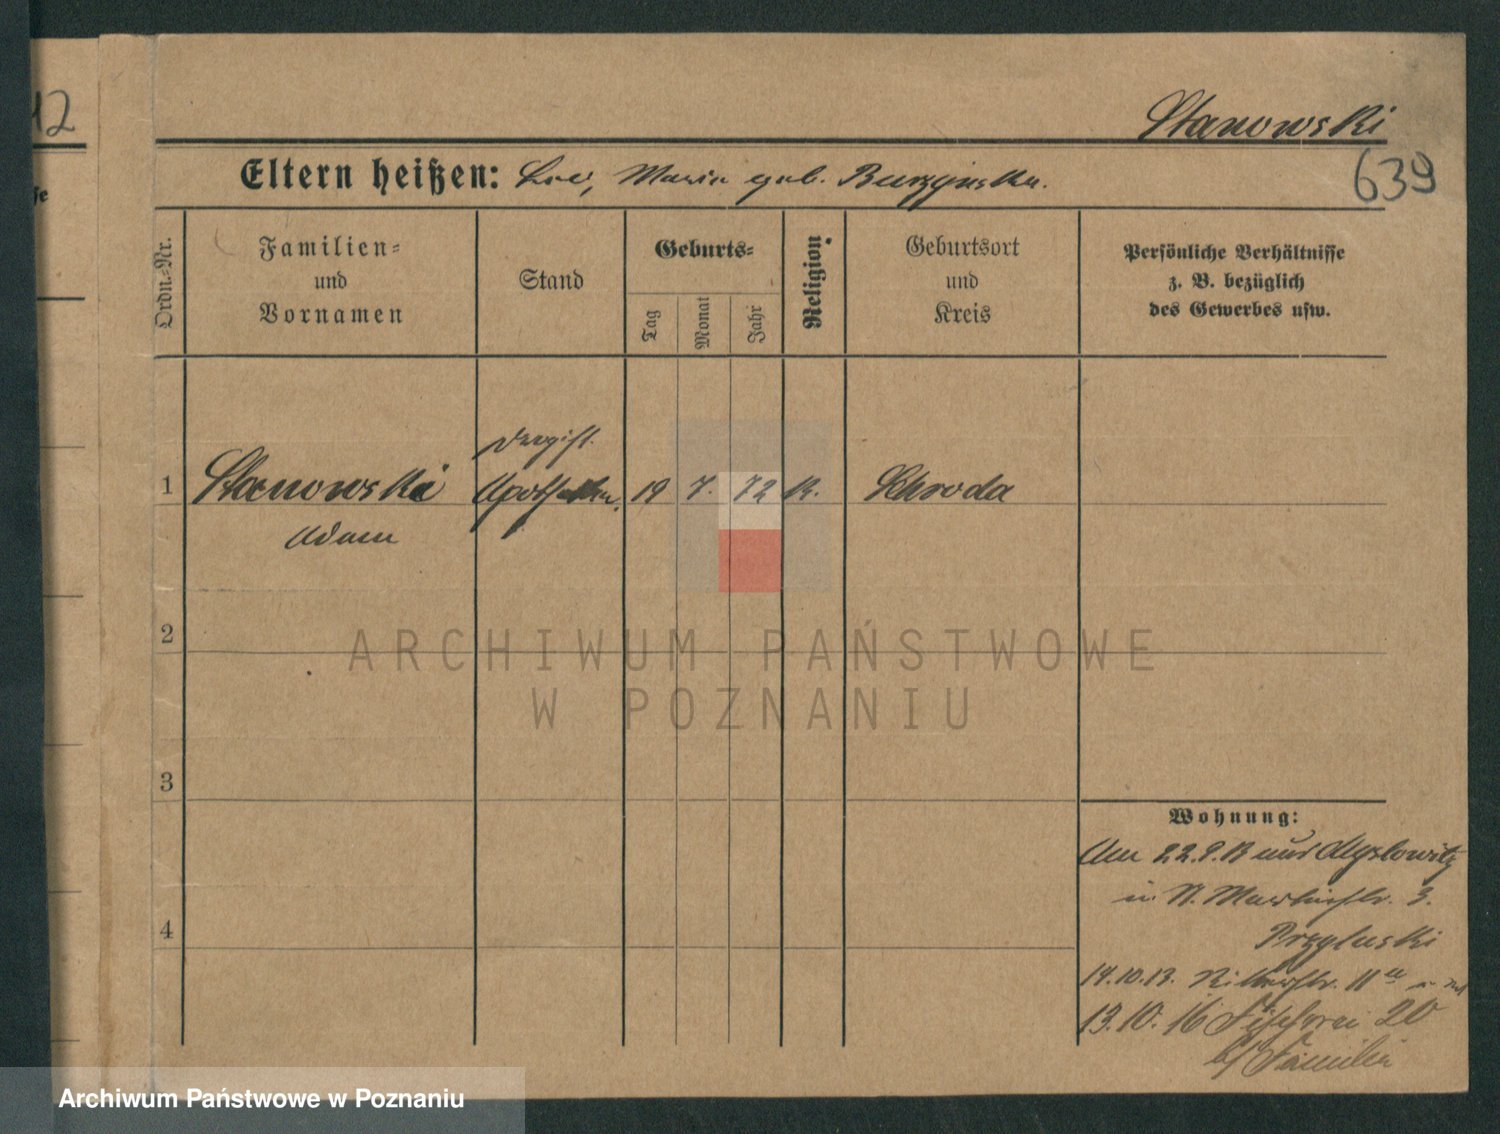 12
Stanowski
639
Eltern heißen: Leo, Maria geb. Burzynska.
Ordn.-Nr.
Familien- und Vornamen
Stand
Geburts-
Tag
Monat
Jahr
Religion.
Geburtsort und Kreis
Persönliche Verhältnisse
z. B. bezüglich
des Gewerbes usw.
1 Stanowski 19 7. 72 K. Schroda
Adam
2
3
4
Wohnung:
Am 22.9.13 aus Myslowitz
in St. Martinstr. 3.
Przyluski
14.10.13. Ritterstr. 11a
13.10.16 Fischerei 20
b/ Familie
ARCHIWUM PAŃSTWOWE
W POZNANIU
Archiwum Państwowe w Poznaniu